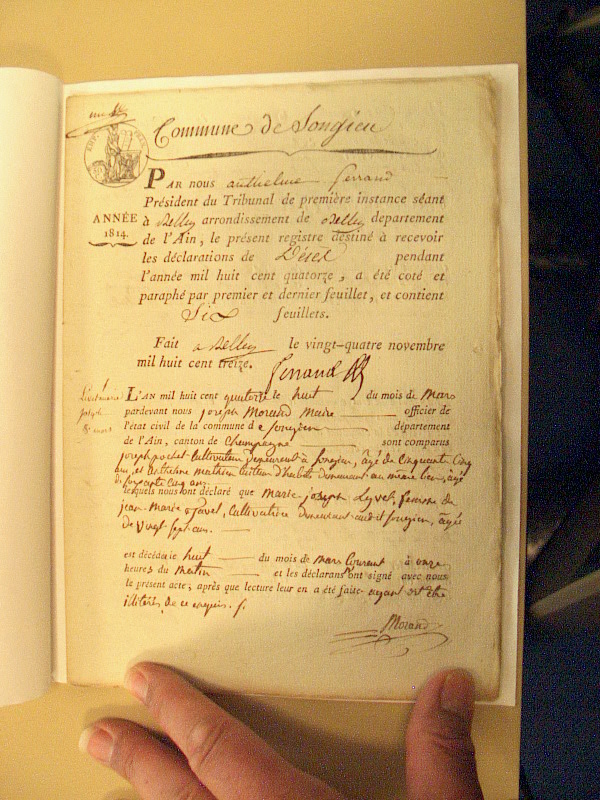 Commune de Songieu
PAR nous anthelme ferrand
Président du Tribunal de première instance séant
ANNÉE
1814.
à Belley arrondissement de Belley departement
de l'Ain, le présent registre destiné à recevoir
les déclarations de Décès pendant
l'année mil huit cent quatorze, a été coté et
paraphé par premier et dernier feuillet, et contient
Six feuillets.
Fait a Belley le vingt-quatre novembre
mil huit cent treize.
ferrand
joseph
8 mars
L'AN mil huit cent quatorze le huit du mois de Mars
pardevant nous joseph Morand Maire officier de
l'état civil de la commune de Songieu département
de l'Ain, canton de Champagne sont comparus
joseph pochet Cultivateur demeurant à Songieu, âgé de Cinquante Cinq
ans, et anthelme demeurant au même lieu, âgé
de soixante Cinq ans
lesquels nous ont déclaré que Marie joseph femme de
jean Marie Cultivatrice demeurant audit Songieu, âgée
de Vingt Sept ans.
est décédée le huit du mois de Mars Courant à onze
heures du Matin et les déclarans ont signé avec nous
le présent acte, après que lecture leur en a été faite ayant dit être
de ce requis.
Morand